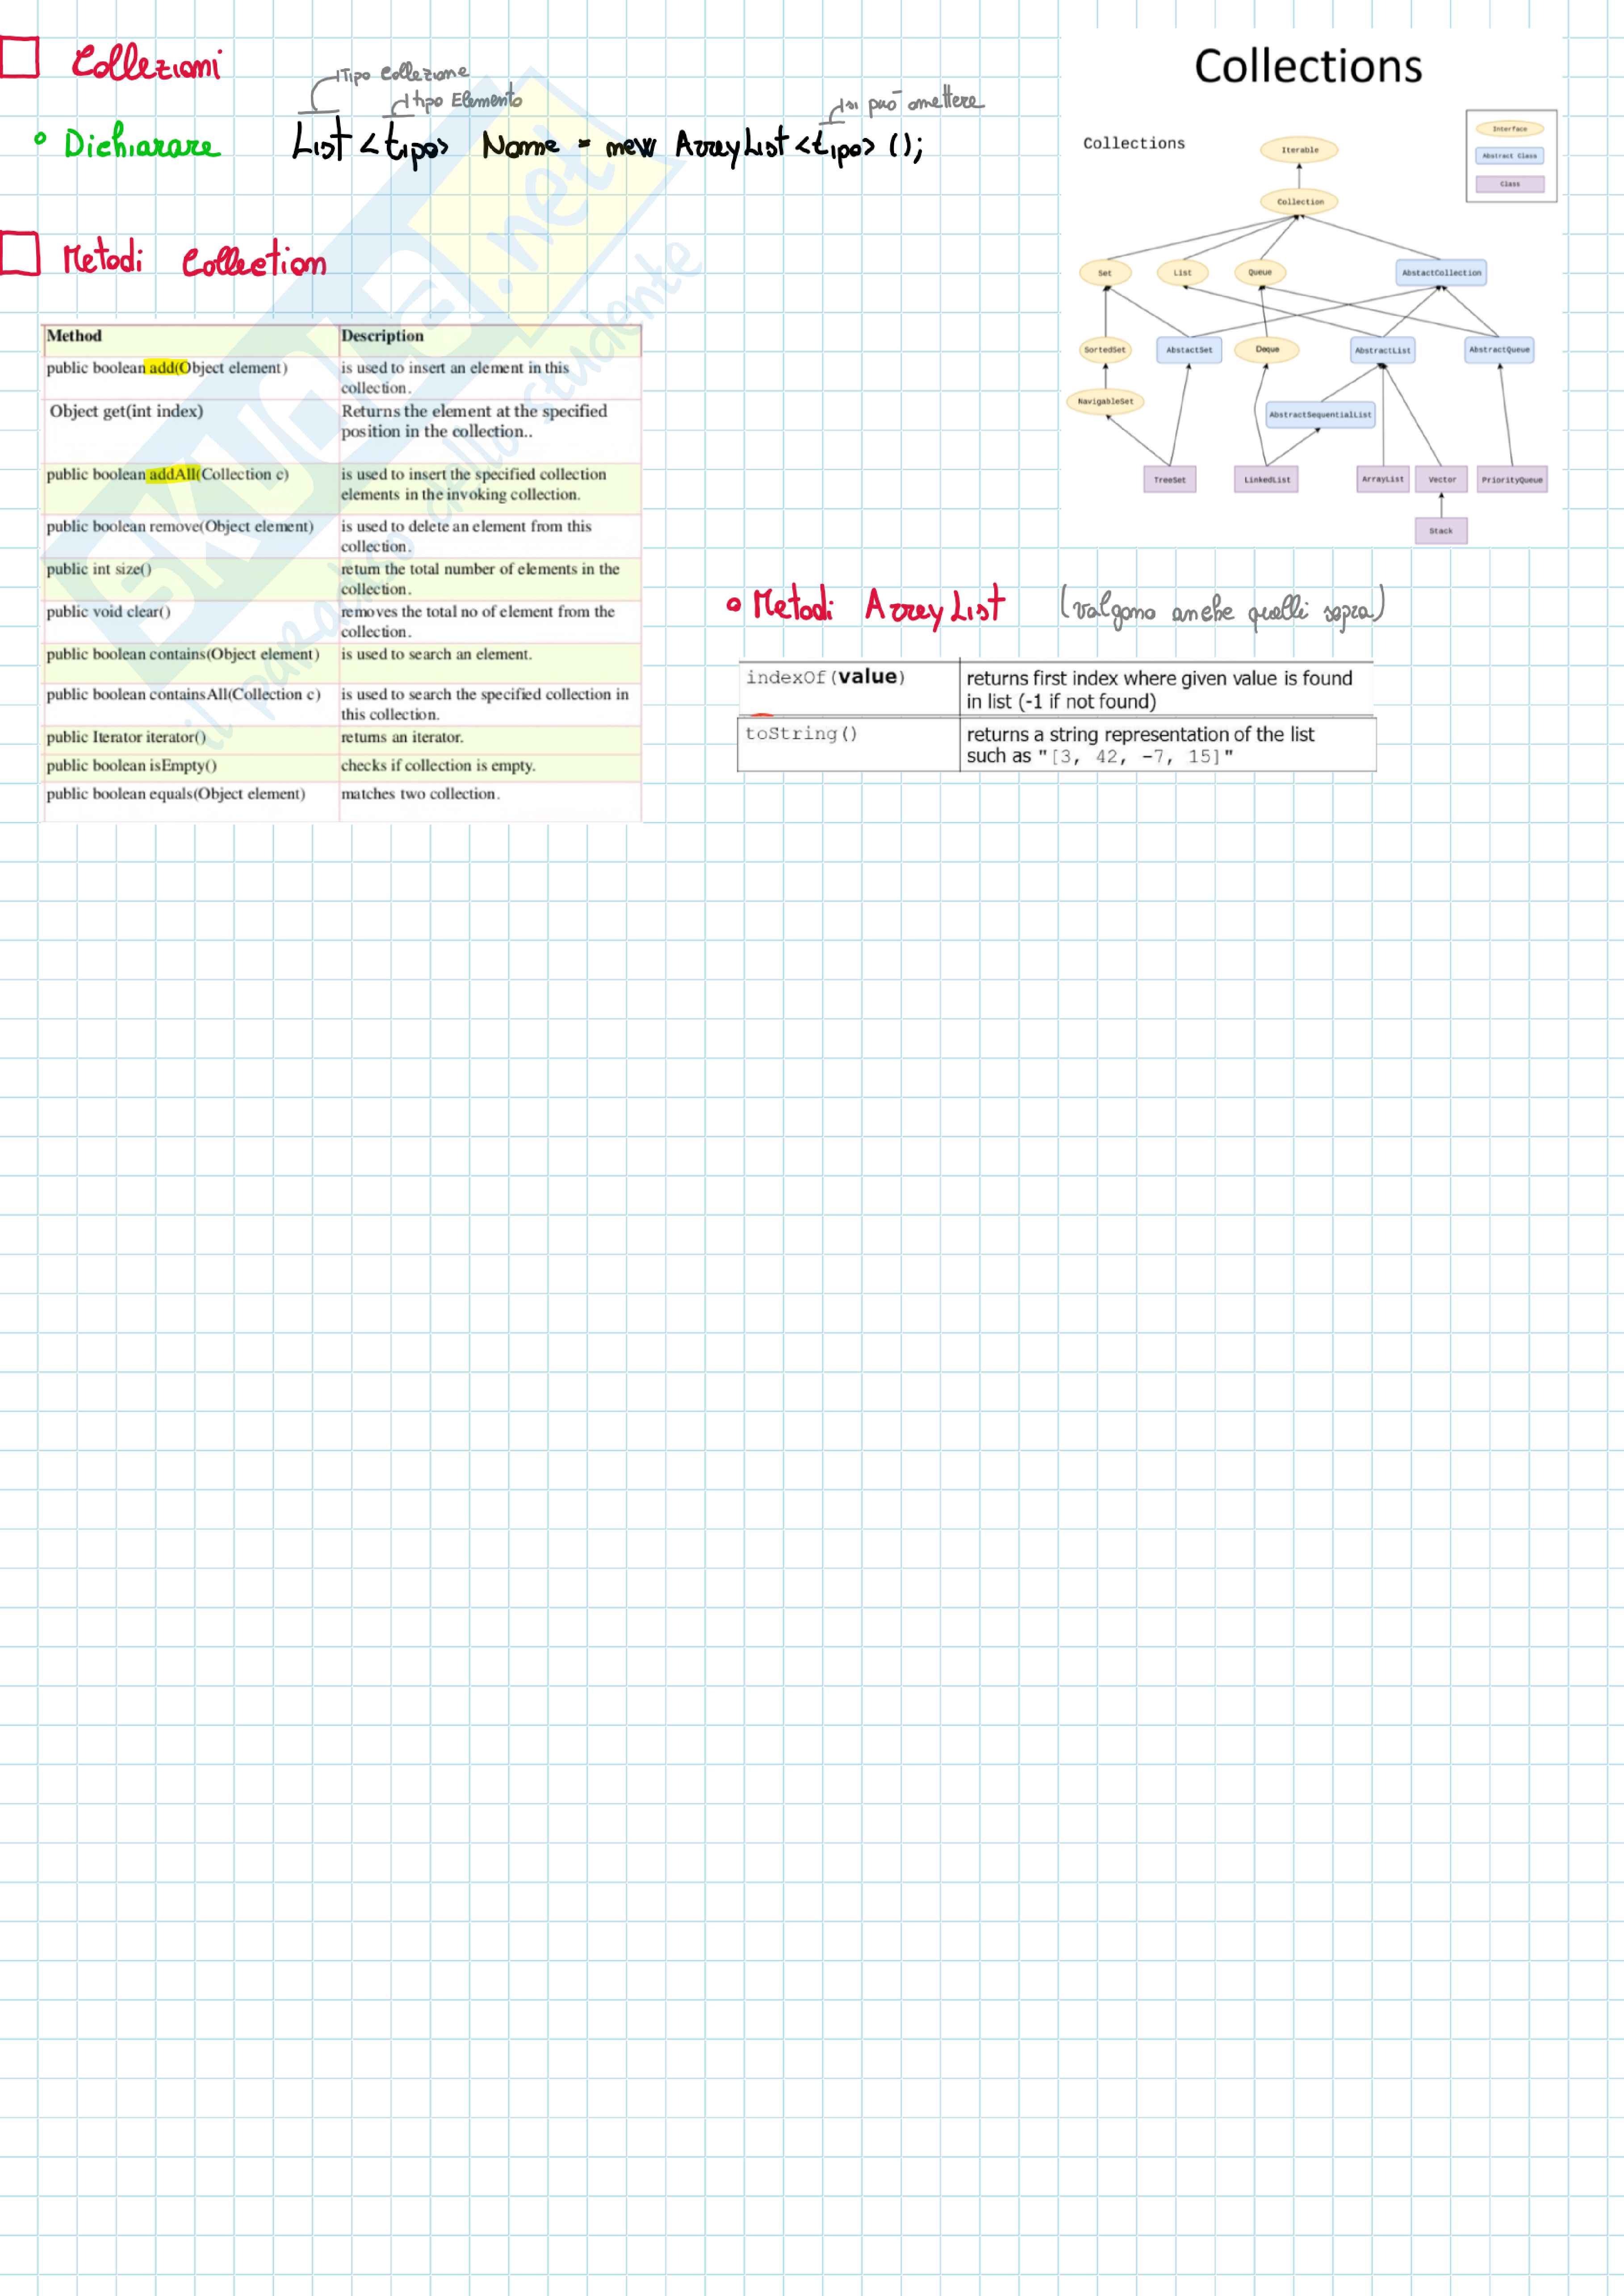 Collezioni
Tipo Collezione
tipo Elemento
si può omettere
• Dichiarare List <tipo> Nome = new ArrayList <tipo> ();
Metodi Collection
Method Description
public boolean add(Object element) is used to insert an element in this
collection.
Object get(int index) Returns the element at the specified
position in the collection..
public boolean addAll(Collection c) is used to insert the specified collection
elements in the invoking collection.
public boolean remove(Object element) is used to delete an element from this
collection.
public int size() return the total number of elements in the
collection.
public void clear() removes the total no of element from the
collection.
public boolean contains(Object element) is used to search an element.
public boolean containsAll(Collection c) is used to search the specified collection in
this collection.
public Iterator iterator() returns an iterator.
public boolean isEmpty() checks if collection is empty.
public boolean equals(Object element) matches two collection.
SKUOLA.net
il paradiso dello studente
Collections
Collections
Interface
Abstract Class
Class
Iterable
Collection
Set List Queue AbstactCollection
SortedSet AbstactSet Deque AbstractList AbstractQueue
NavigableSet AbstractSequentialList
TreeSet LinkedList ArrayList Vector PriorityQueue
Stack
• Metodi ArrayList (valgono anche quelli sopra)
indexOf(value) returns first index where given value is found
in list (-1 if not found)
toString() returns a string representation of the list
such as "[3, 42, -7, 15]"